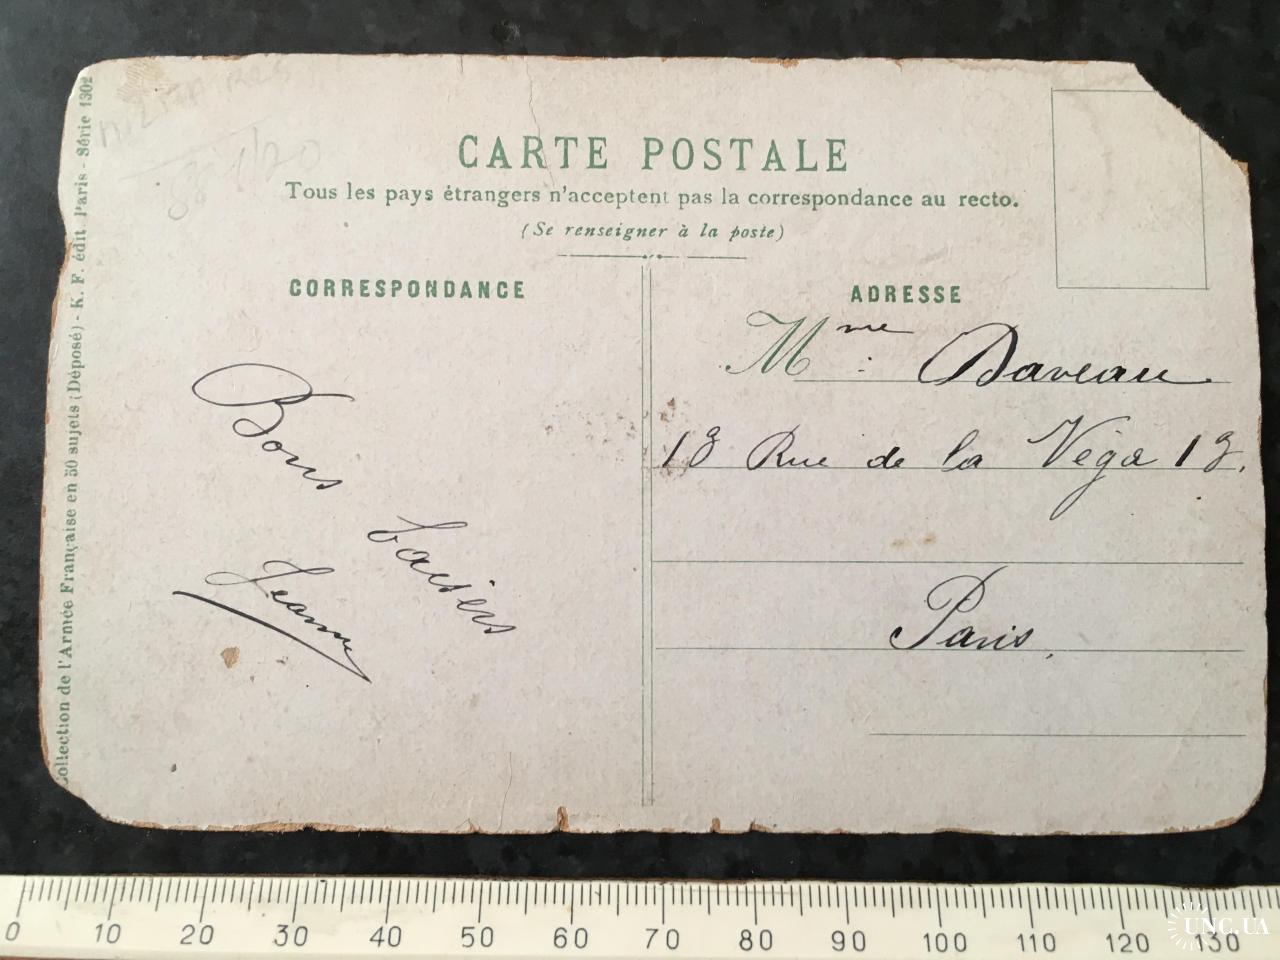 CARTE POSTALE
Tous les pays étrangers n'acceptent pas la correspondance au recto.
(Se renseigner à la poste)
CORRESPONDANCE
ADRESSE
Bons baisers
Jeanne
Mme Daveau
18 Rue de la Véga 18.
Paris.
Collection de l'Armée Française en 50 sujets (Déposé) - K. F. édit. Paris - Série 1302
MILITAIRES
0 10 20 30 40 50 60 70 80 90 100 110 120 130
UNC.UA